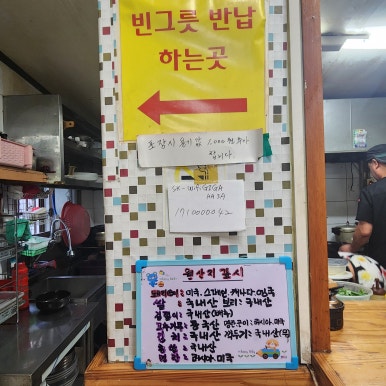 빈그릇 반납
하는곳
포장시 용기값 1,000원 추가
됩니다.
SK-WiFiGIGA
AA39
1910000042
원산지 표시
돼지고기: 미국, 스페인, 캐나다, 영국
쌀: 국내산 보리: 국내산
국내산(배추)
고추가루: 중국산 명란곤이: 러시아, 미국
김치: 국내산 깍두기: 국내산(무)
국내산
명란: 러시아, 미국